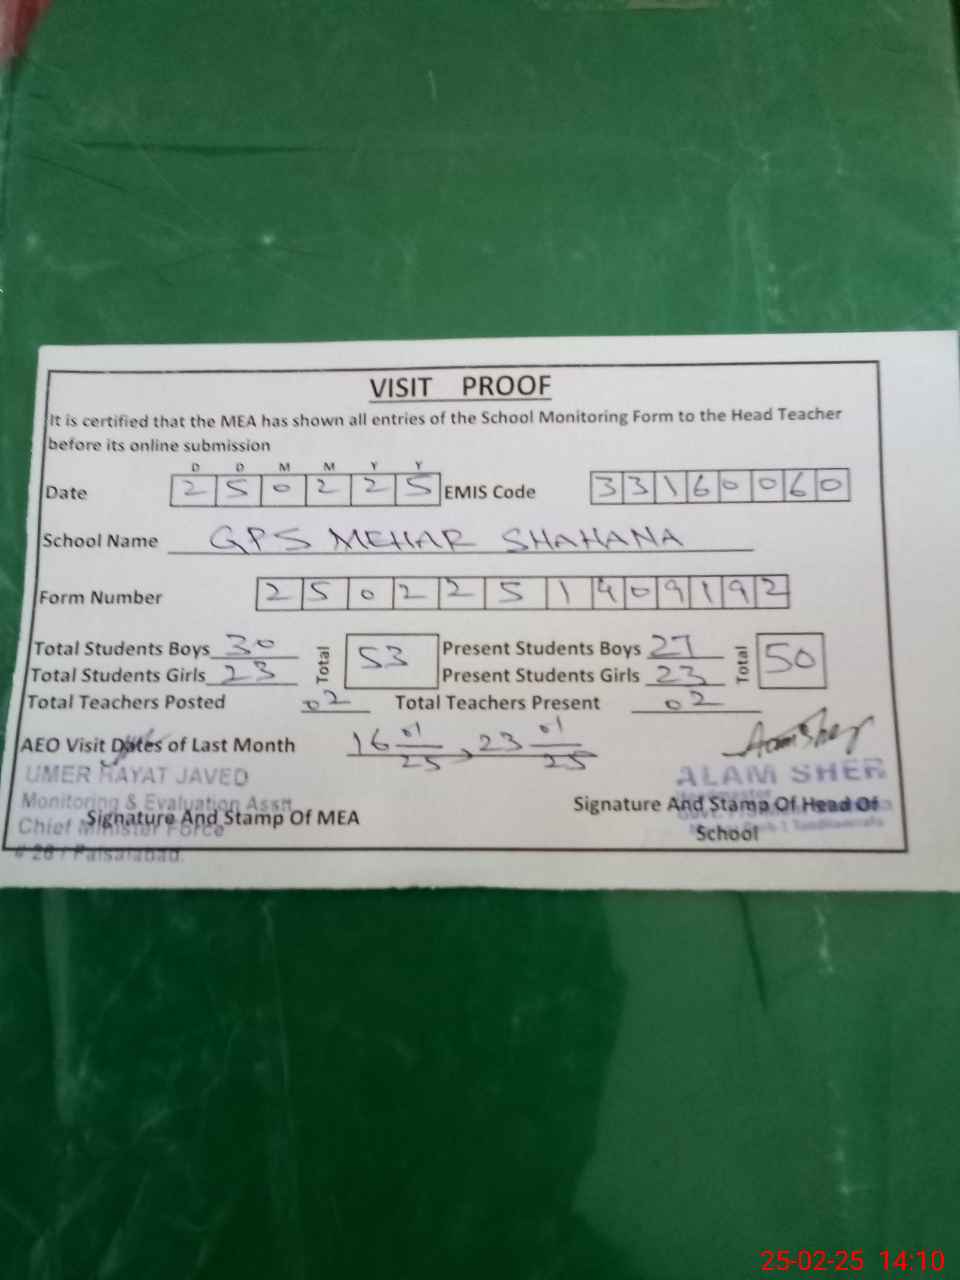 VISIT PROOF
It is certified that the MEA has shown all entries of the School Monitoring Form to the Head Teacher
before its online submission
D D M M Y Y
Date 2 5 0 2 2 5 EMIS Code 3 3 1 6 0 0 6 0
School Name GPS MEHAR SHAHANA
Form Number 2 5 0 2 2 5 1 4 0 9 1 9 2
Total Students Boys 30 Total 53 Present Students Boys 27 Total 50
Total Students Girls 23 Present Students Girls 23
Total Teachers Posted 02 Total Teachers Present 02
AEO Visit Dates of Last Month 16 01/25, 23 01/25
UMER HAYAT JAVED
Monitoring & Evaluation Asstt
Chief Minister Force
# 26 / Faisalabad.
Signature And Stamp Of MEA
Alam Sher
ALAM SHER
Headmaster
Signature And Stamp Of Head Of
School
25-02-25 14:10